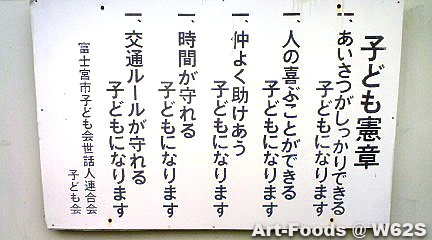 子ども憲章
一、あいさつがしっかりできる
子どもになります
一、人の喜ぶことができる
子どもになります
一、仲よく助けあう
子どもになります
一、時間が守れる
子どもになります
一、交通ルールが守れる
子どもになります
富士宮市子ども会世話人連合会
子ども会
Art-Foods @ W62S